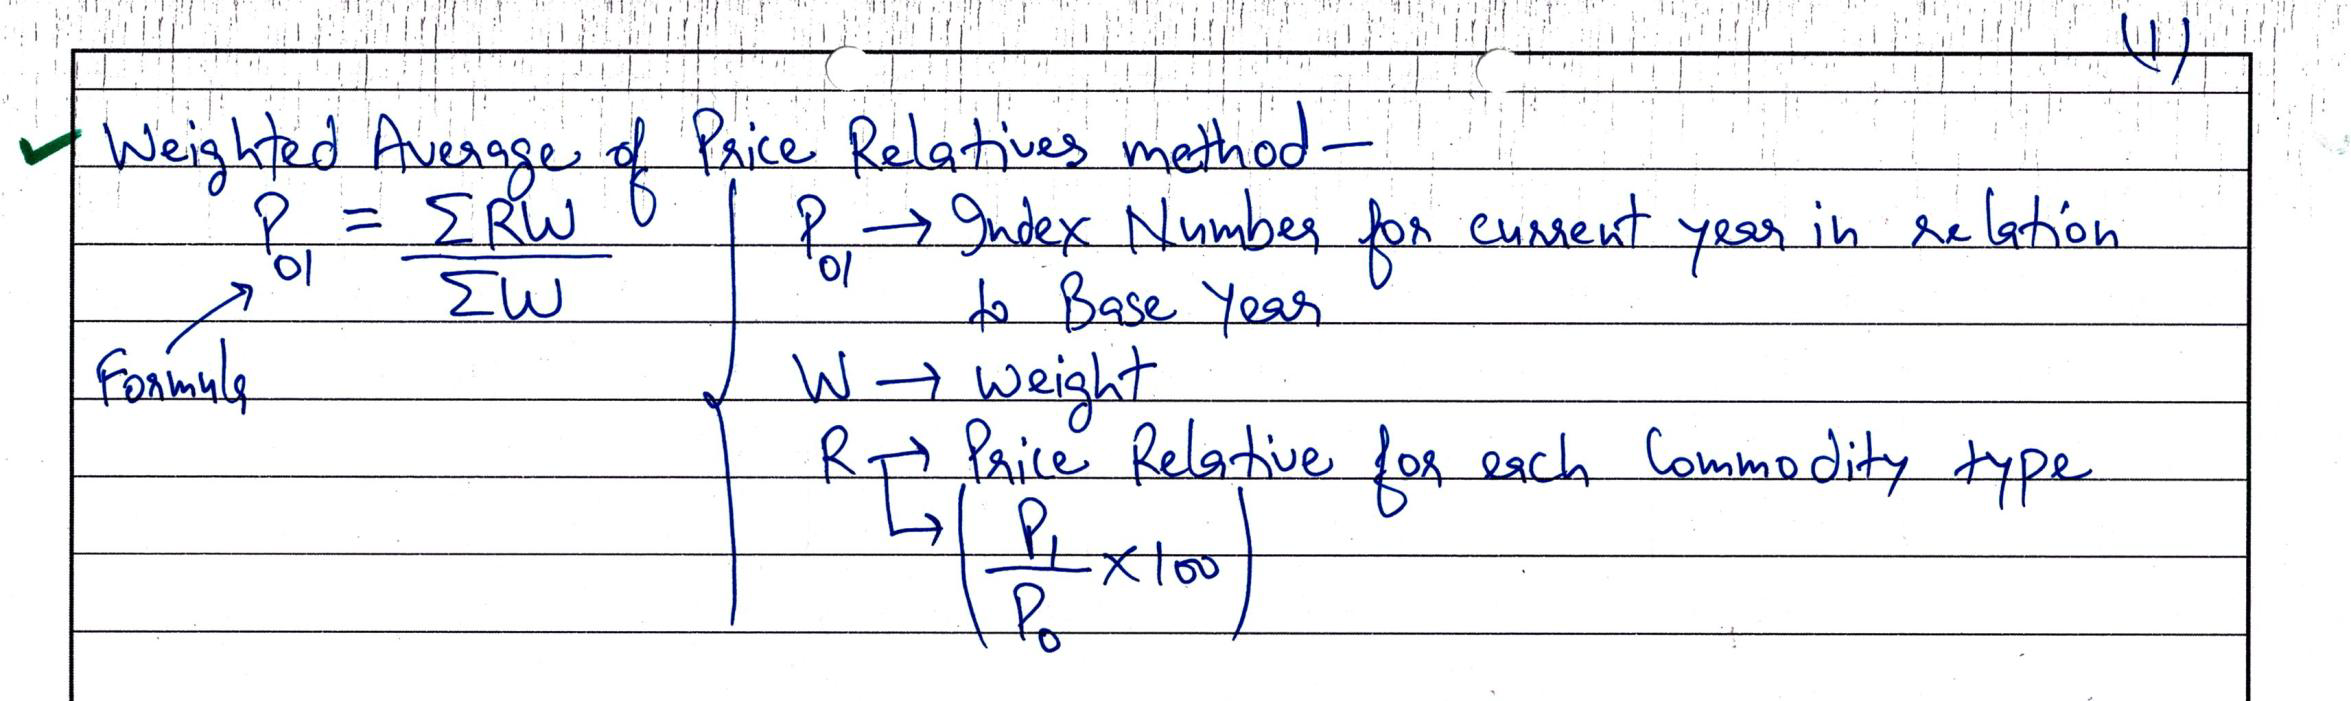 (1)
Weighted Average of Price Relatives method—
P01 = ΣRW / ΣW
Formula
P01 → Index Number for current year in relation
to Base Year
W → Weight
R → Price Relative for each Commodity type
→ (P1 / P0 × 100)